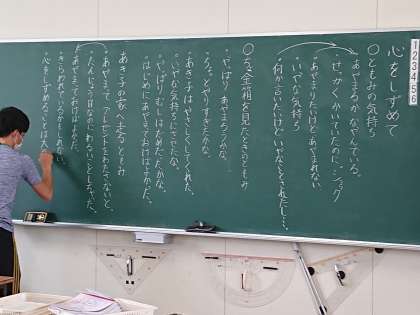 心をしずめて
○ともみの気持ち
・あやまるか、なやんでいる。
・せっかくかいていたのに、ショック
・あやまりたいけどあやまれない
・いやな気持ち
・何か言いたいけどいやなことをされたし…。
○ちょ金箱を見たときのともみ
・やっぱりあやまろうかな…
・ちょっとやりすぎたかな。
・あき子はやさしくしてくれた。
・いやな気持ちにさせたな。
・やっぱりむしはだめだったかな。
・はじめにあやまっておけばよかった。
あき子の家へ走るともみ
・あやまってプレゼントをわたさないと。
・たんじょう日なのにわるいことしちゃった。
・あやまっておけばよかった。
・きらわれているかもしれない。
・心をしずめることは大
1 2 3 4 5 6